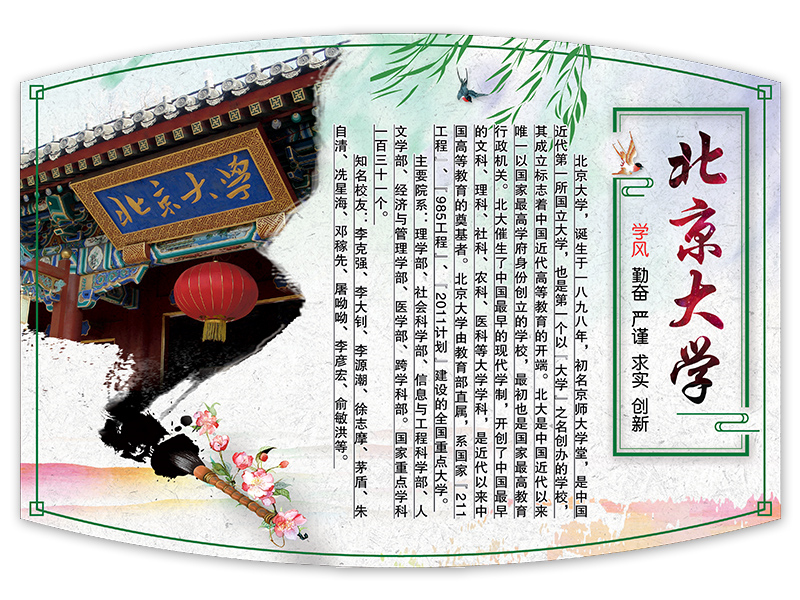 北京大学
学风 勤奋 严谨 求实 创新
北京大学，诞生于一八九八年，初名京师大学堂，是中国
近代第一所国立大学，也是第一个以『大学』之名创办的学校，
其成立标志着中国近代高等教育的开端。北大是中国近代以来
唯一以国家最高学府身份创立的学校，最初也是国家最高教育
行政机关。北大催生了中国最早的现代学制，开创了中国最早
的文科、理科、社科、农科、医科等大学学科，是近代以来中
国高等教育的奠基者。北京大学由教育部直属，系国家『211
工程』、『985工程』、『2011计划』建设的全国重点大学。
主要院系：理学部、社会科学部、信息与工程科学部、人
文学部、经济与管理学部、医学部、跨学科部。国家重点学科
一百三十一个。
知名校友：李克强、李大钊、李源潮、徐志摩、茅盾、朱
自清、冼星海、邓稼先、屠呦呦、李彦宏、俞敏洪等。
北京大學